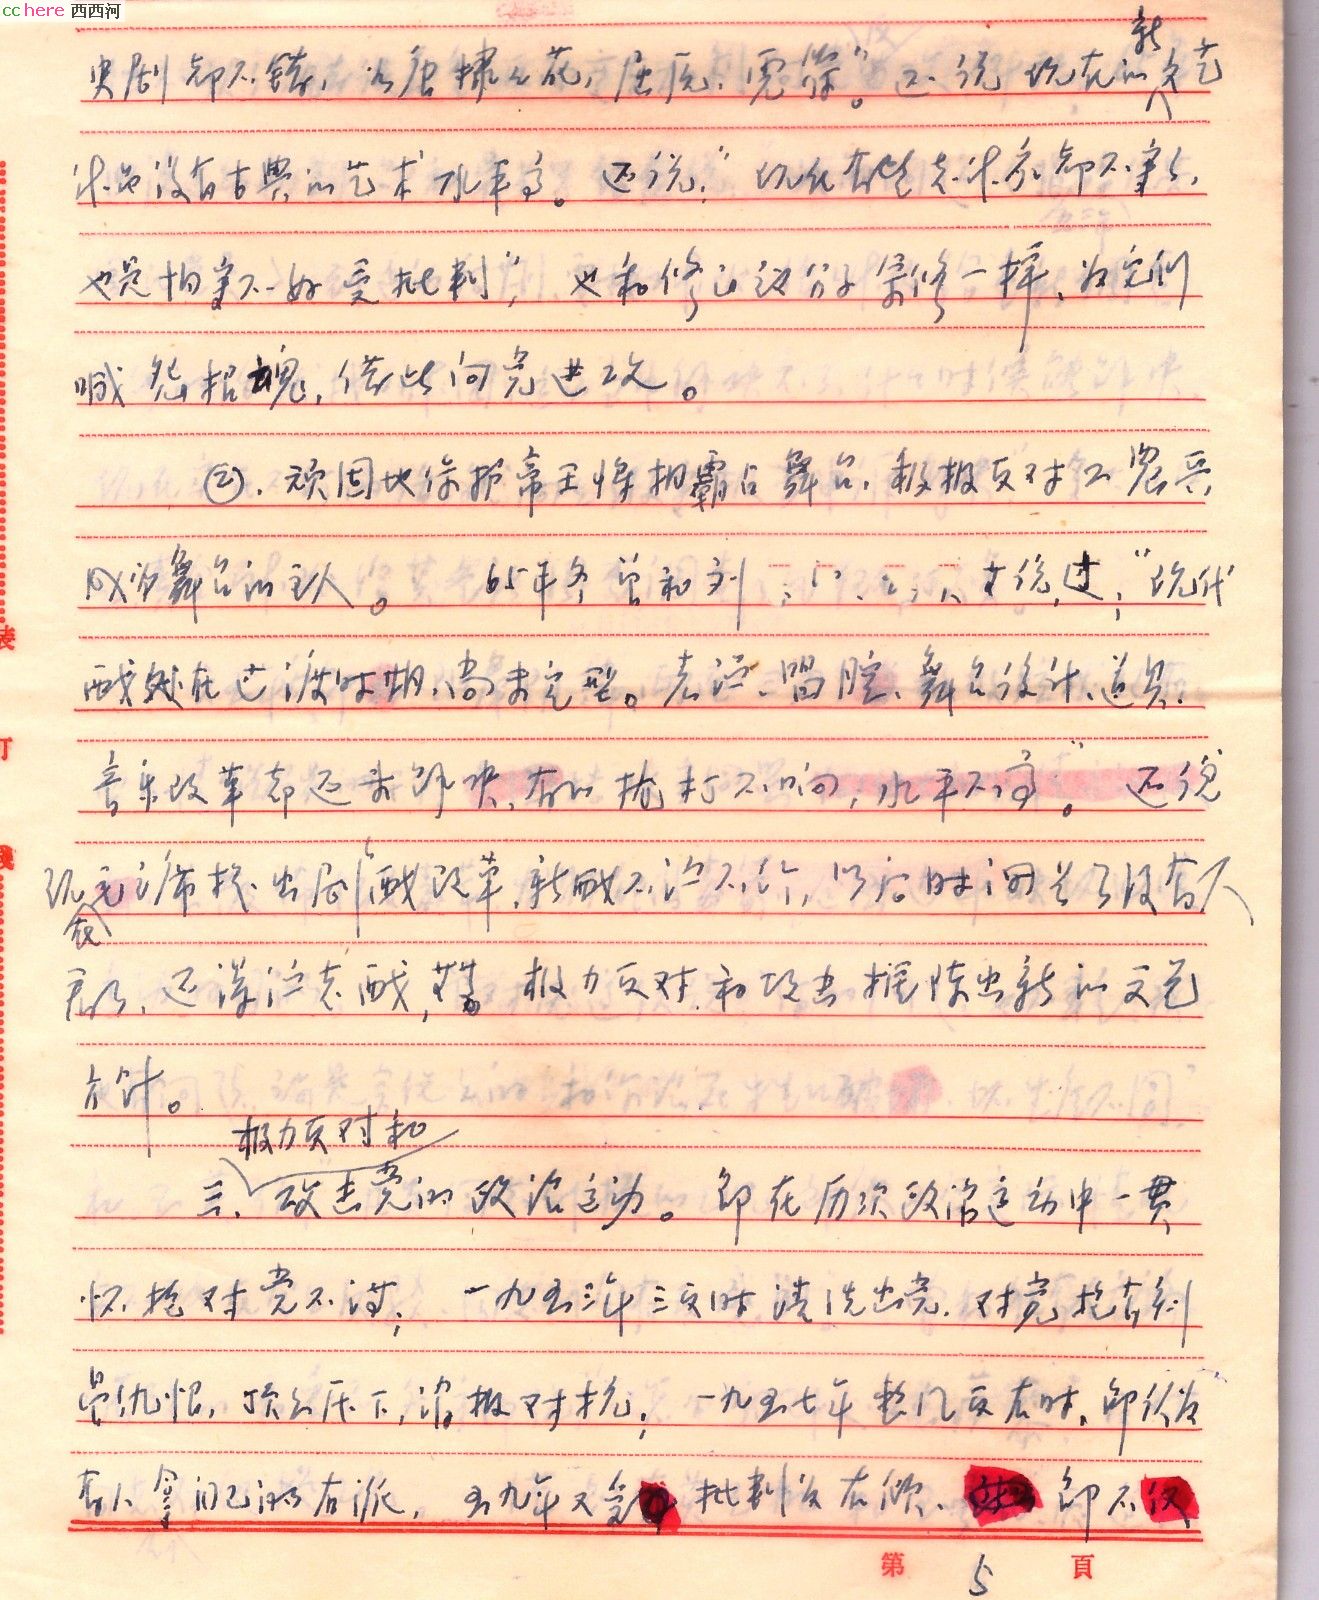 cchere 西西河
史剧却不错，如唐棣之花，屈原，虎符"。还说现在的新文艺
作品没有古典的艺术水平高。还说："现在有些老作家却不写，
也是怕写不好受批判"，也和修正主义分子一样，为它们
喊怨招魂，借此向党进攻。
②、顽固地保护帝王将相霸占舞台，积极反对工农兵
成为舞台的主人。 65年冬曾和刘 才说过："现代
戏处在过渡时期，尚未定型。表演、唱腔、舞台设计、道具、
音乐改革都还未解决，有的枪打不响，水平不高"。还说
现在毛主席提出剧戏改革，新戏不让不行，以后时间长了没有人
看的，还演老戏， 极力反对和攻击推陈出新的文艺
方针。
极力反对和
三、攻击党的政治运动。 即在历次政治运动中一贯
怀抱对党不满； 一九五三年三反时清洗出党，对党抱有刻
骨仇恨，压下，消极对抗； 一九五七年整风反右时，即认为
有人拿自己当右派，五九年又受 批判为右倾、 即不仅
第 5 頁